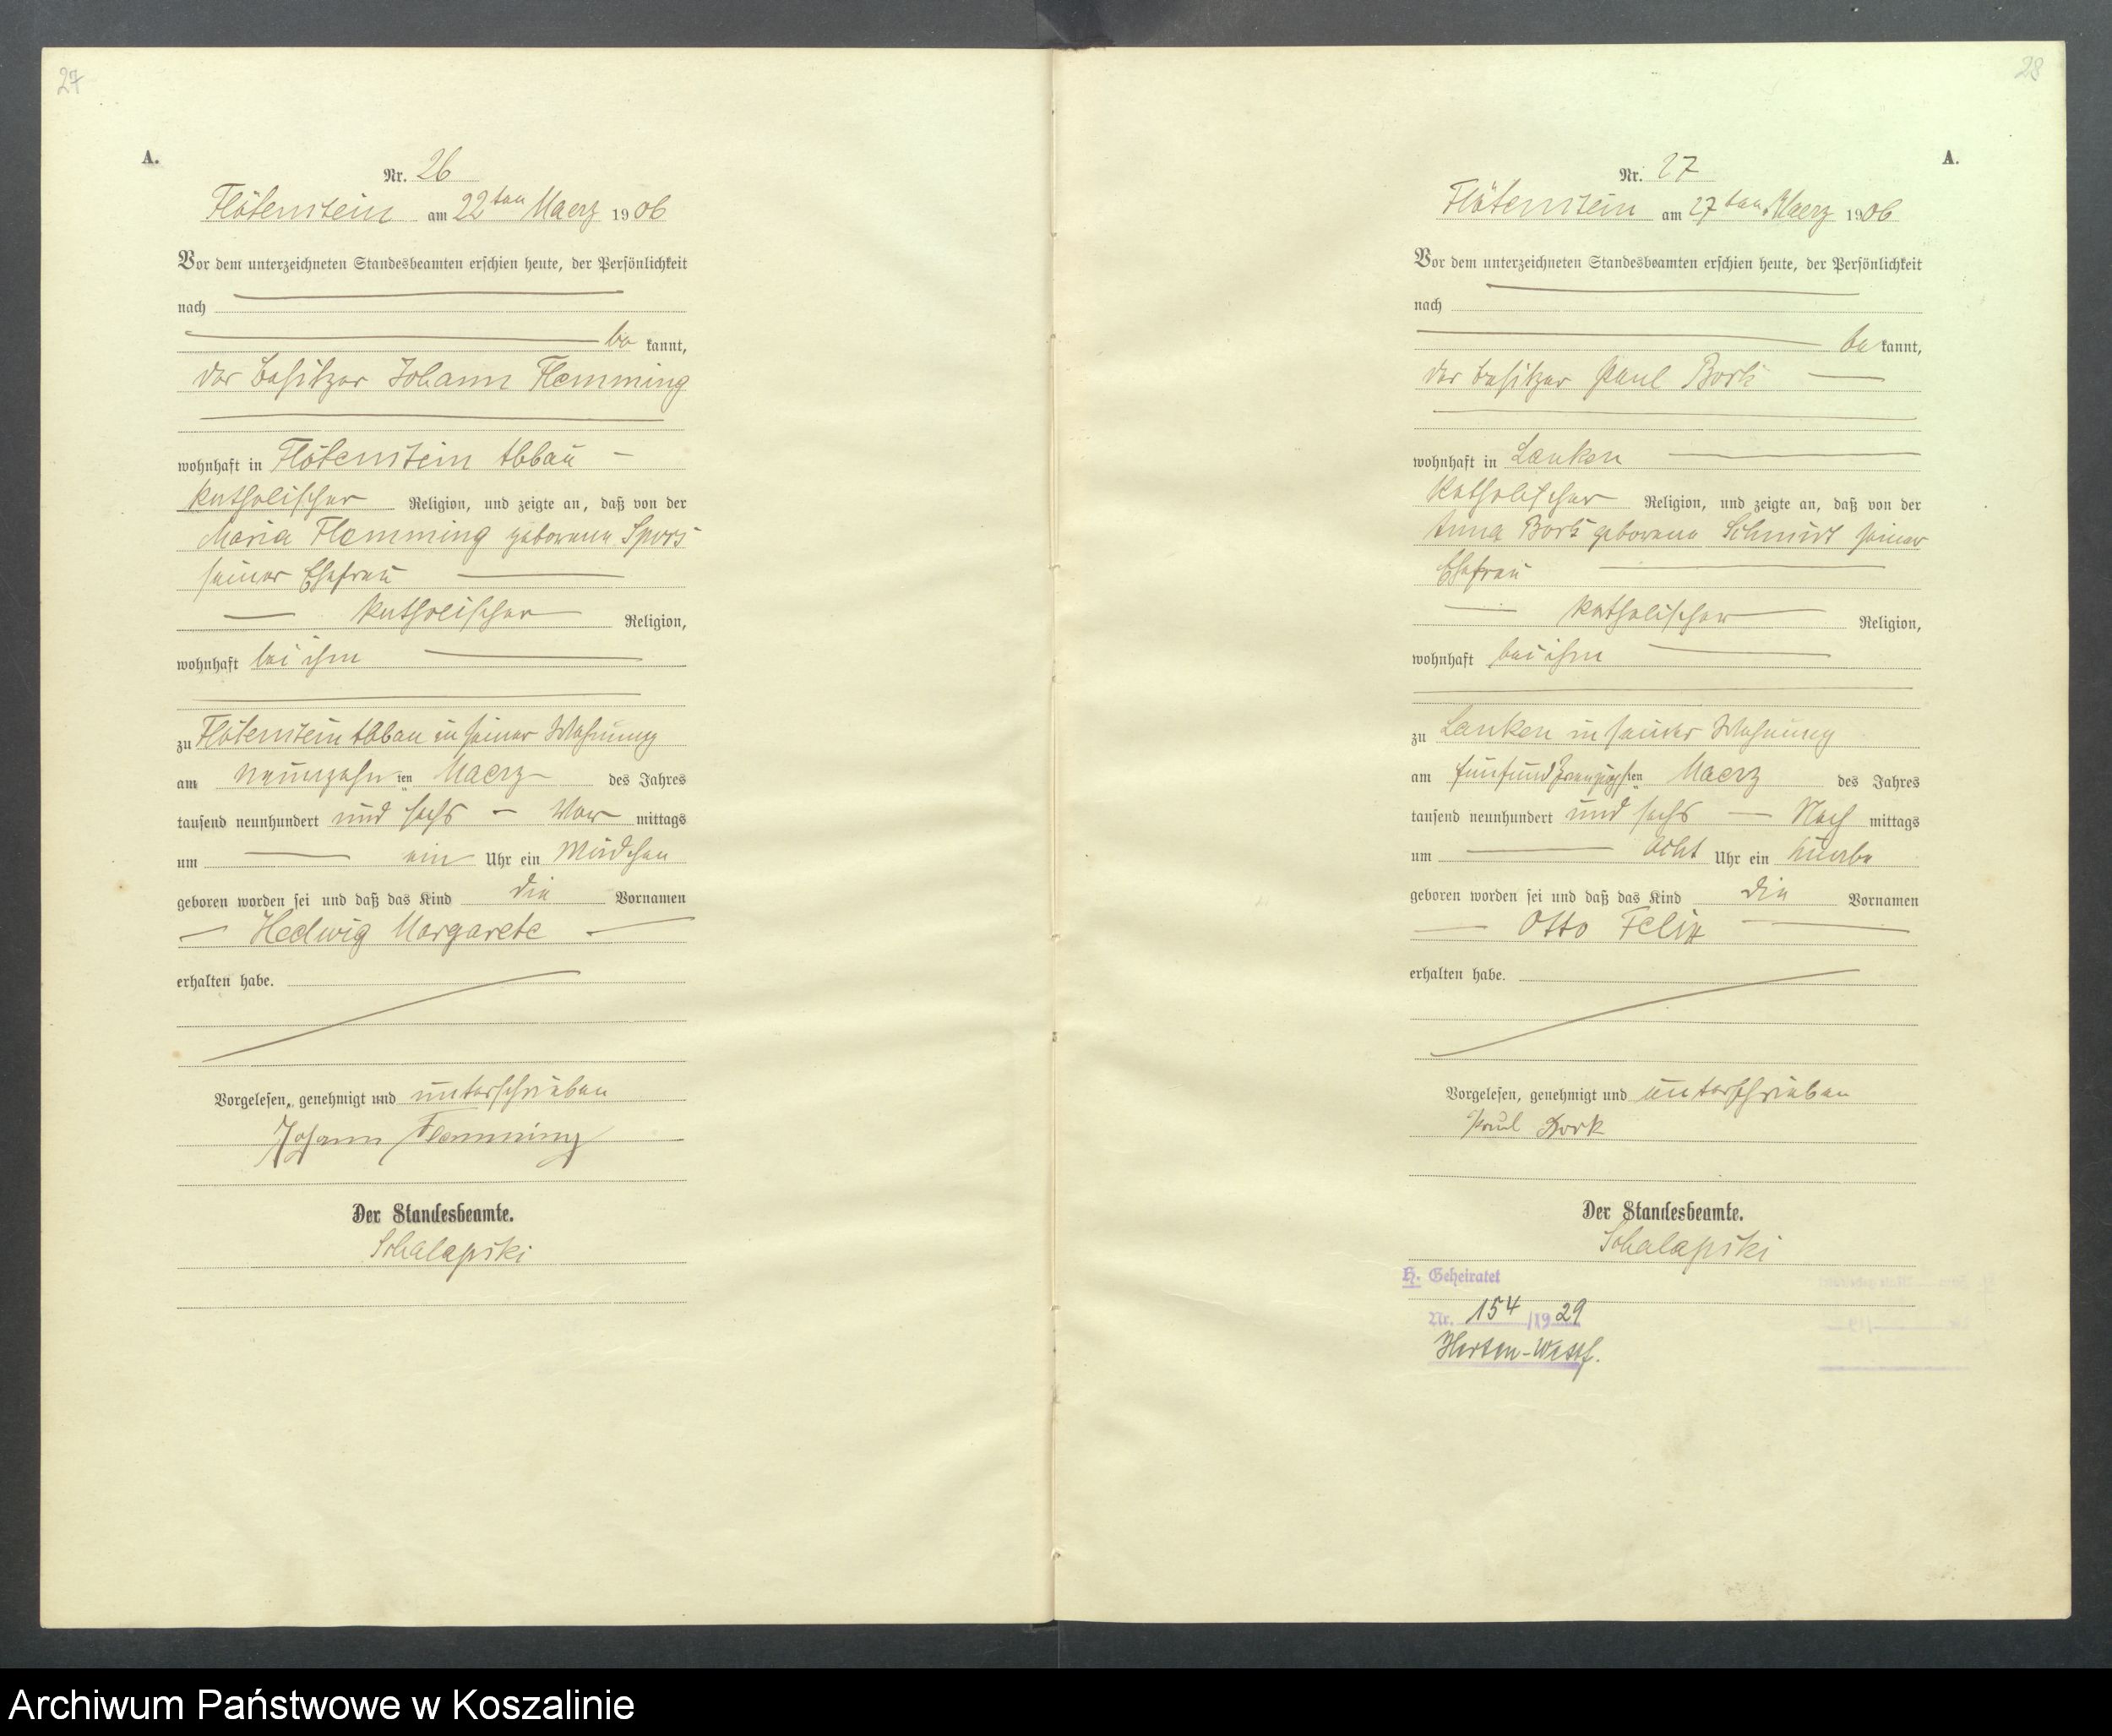 27
A.
Nr. 26
Flötenstein am 22ten Maerz 1906
Vor dem unterzeichneten Standesbeamten erschien heute, der Persönlichkeit
nach
be kannt,
der Besitzer Johann Flemming
wohnhaft in Flötenstein Abbau
katholischer Religion, und zeigte an, daß von der
Maria Flemming geborenen Spors
seiner Ehefrau
katholischer Religion,
wohnhaft bei ihm
zu Flötenstein Abbau in seiner Wohnung
am neunzehn ten Maerz des Jahres
tausend neunhundert und sechs Vor mittags
um ein Uhr ein Mädchen
geboren worden sei und daß das Kind die Vornamen
Hedwig Margarete
erhalten habe.
Vorgelesen, genehmigt und unterschrieben
Johann Flemming
Der Standesbeamte.
28
A.
Nr. 27
Flötenstein am 27ten Maerz 1906
Vor dem unterzeichneten Standesbeamten erschien heute, der Persönlichkeit
nach
be kannt,
der Besitzer Paul Bork
wohnhaft in Lanken
katholischer Religion, und zeigte an, daß von der
Anna Bork geborene Schmidt seiner
Ehefrau
katholischer Religion,
wohnhaft bei ihm
zu Lanken in seiner Wohnung
am fünfundzwanzigsten Maerz des Jahres
tausend neunhundert und sechs Nach mittags
um acht Uhr ein Knabe
geboren worden sei und daß das Kind die Vornamen
Otto Felix
erhalten habe.
Vorgelesen, genehmigt und unterschrieben
Paul Bork
Der Standesbeamte.
H. Geheiratet
Nr. 154 /1929
Herten-Westf.
Archiwum Państwowe w Koszalinie